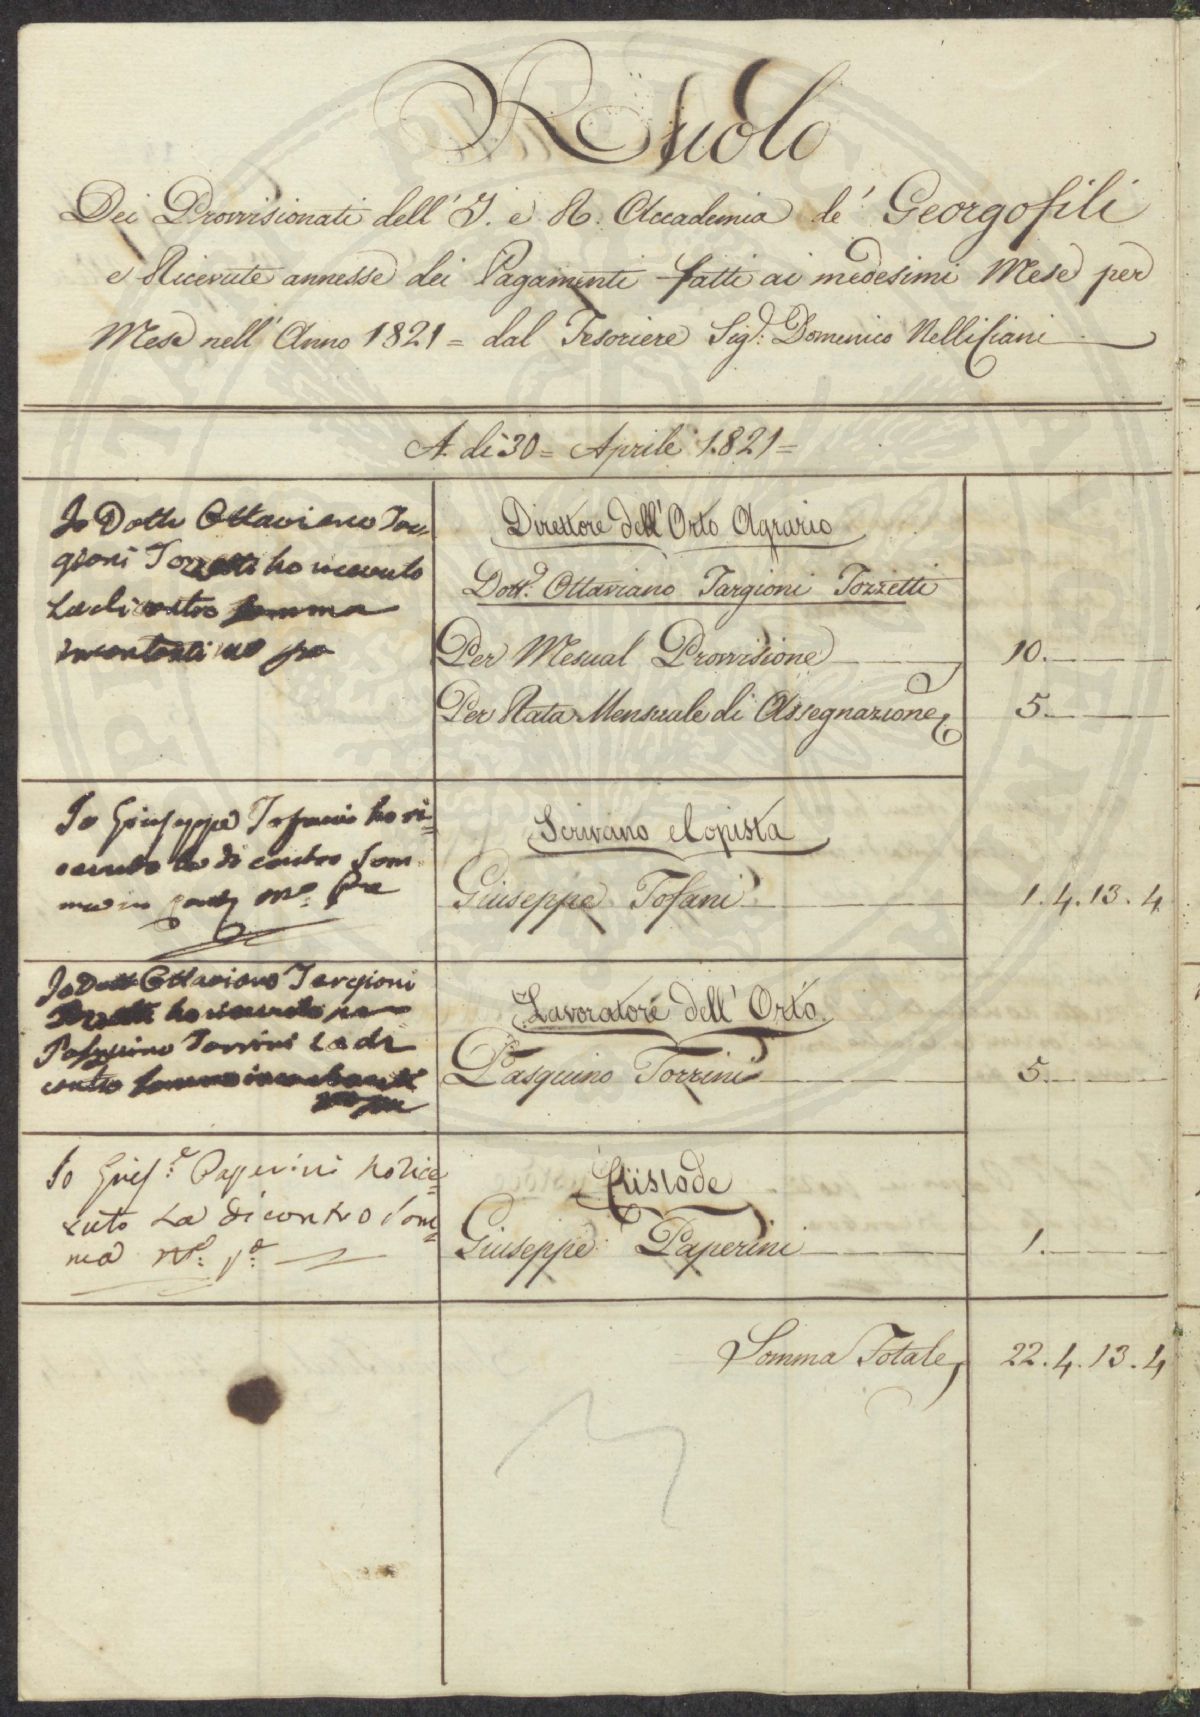 Ruolo
Dei Provvisionati dell' I. e R. Accademia de' Georgofili
e Ricevute annesse dei Pagamenti fatti ai medesimi Mese per
Mese nell' Anno 1821 = dal Tesoriere Sigr: Domenico Nelli Ciani
A di 30 = Aprile 1821 =
Io Dottr Ottaviano Tar=
gioni Tozzetti ho ricevuto
La di contro somma
in contanti mo po
Direttore dell' Orto Agrario
Dottr. Ottaviano Targioni Tozzetti
Per Mesual Provvisione 10.
Per Rata Mensuale di Assegnazione 5.
Io Giuseppe Tofani ho ri=
cevuto la di contro som
ma in mo. pa
Scrivano e Copista
Giuseppe Tofani 1.4.13.4
Io Dott Ottaviano Targioni
Tozzetti ho ricevuto per
Pasquino Torrini La di
contro somma in contanti
mo po
Lavoratore dell' Orto.
Pasquino Torrini 5.
Io Gius.e Paperini ho rice=
vuto La di contro som=
ma Mo: po:
Custode
Giuseppe Paperini 1.
Somma Totale, 22.4.13.4